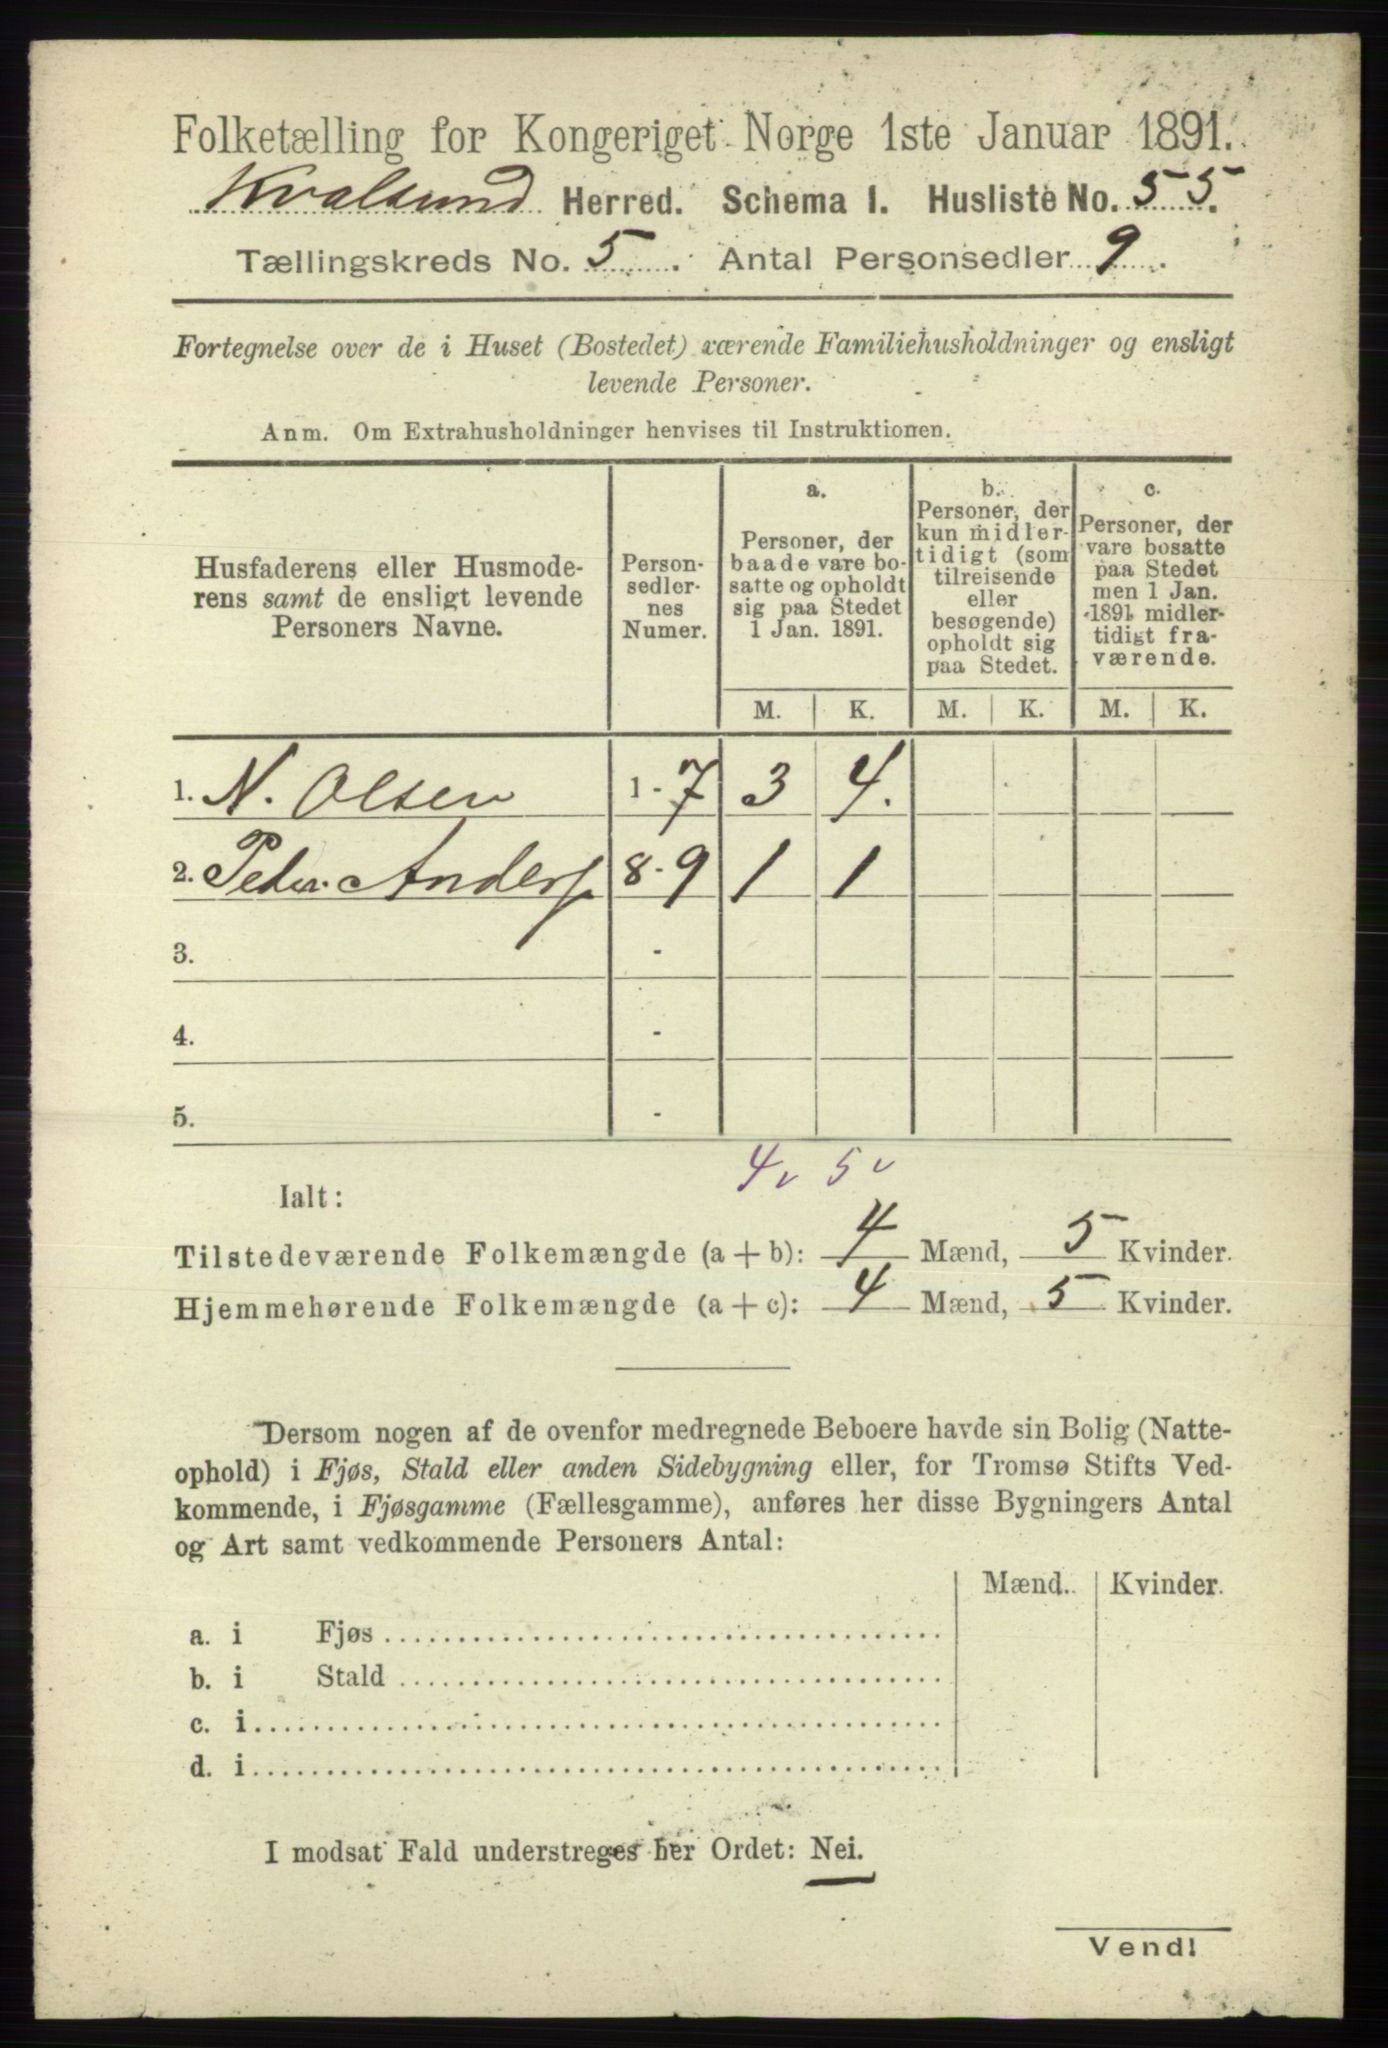 Folketælling for Kongeriget Norge 1ste Januar 1891.
Kvalsund Herred. Schema I. Husliste No. 55.
Tællingskreds No. 5. Antal Personsedler 9.
Fortegnelse over de i Huset (Bostedet) værende Familiehusholdninger og ensligt
levende Personer.
Anm. Om Extrahusholdninger henvises til Instruktionen.
Husfaderens eller Husmode-
rens samt de ensligt levende
Personers Navne.
Person-
sedler-
nes
Numer.
a.
Personer, der
baade vare bo-
satte og opholdt
sig paa Stedet
1 Jan. 1891.
b.
Personer, der
kun midler-
tidigt (som
tilreisende
eller
besøgende)
opholdt sig
paa Stedet.
c.
Personer, der
vare bosatte
paa Stedet
men 1 Jan.
1891 midler-
tidigt fra-
værende.
M. K. M. K. M. K.
1. N. Olsen 1-7 3 4.
2. Peder Anders 8-9 1 1
3. -
4. -
5. -
4 v 5 v
Ialt:
Tilstedeværende Folkemængde (a + b): 4 Mænd, 5 Kvinder.
Hjemmehørende Folkemængde (a + c): 4 Mænd, 5 Kvinder.
Dersom nogen af de ovenfor medregnede Beboere havde sin Bolig (Natte-
ophold) i Fjøs, Stald eller anden Sidebygning eller, for Tromsø Stifts Ved-
kommende, i Fjøsgamme (Fællesgamme), anføres her disse Bygningers Antal
og Art samt vedkommende Personers Antal:
Mænd. Kvinder.
a. i Fjøs
b. i Stald
c. i
d. i
I modsat Fald understreges her Ordet: Nei.
Vend!